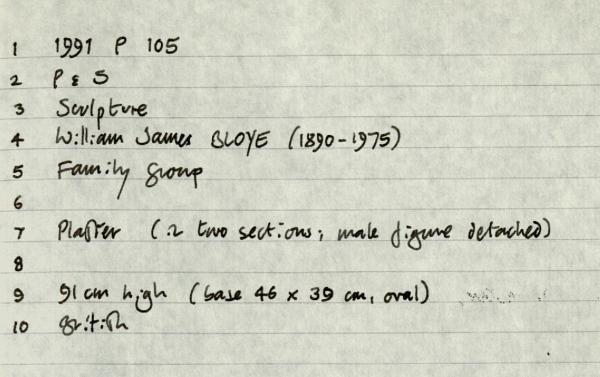 1 1991 P 105
2 P & S
3 Sculpture
4 William James BLOYE (1890-1975)
5 Family Group
6
7 Plaster (in two sections; male figure detached)
8
9 91 cm high (base 46 x 39 cm, oval)
10 British